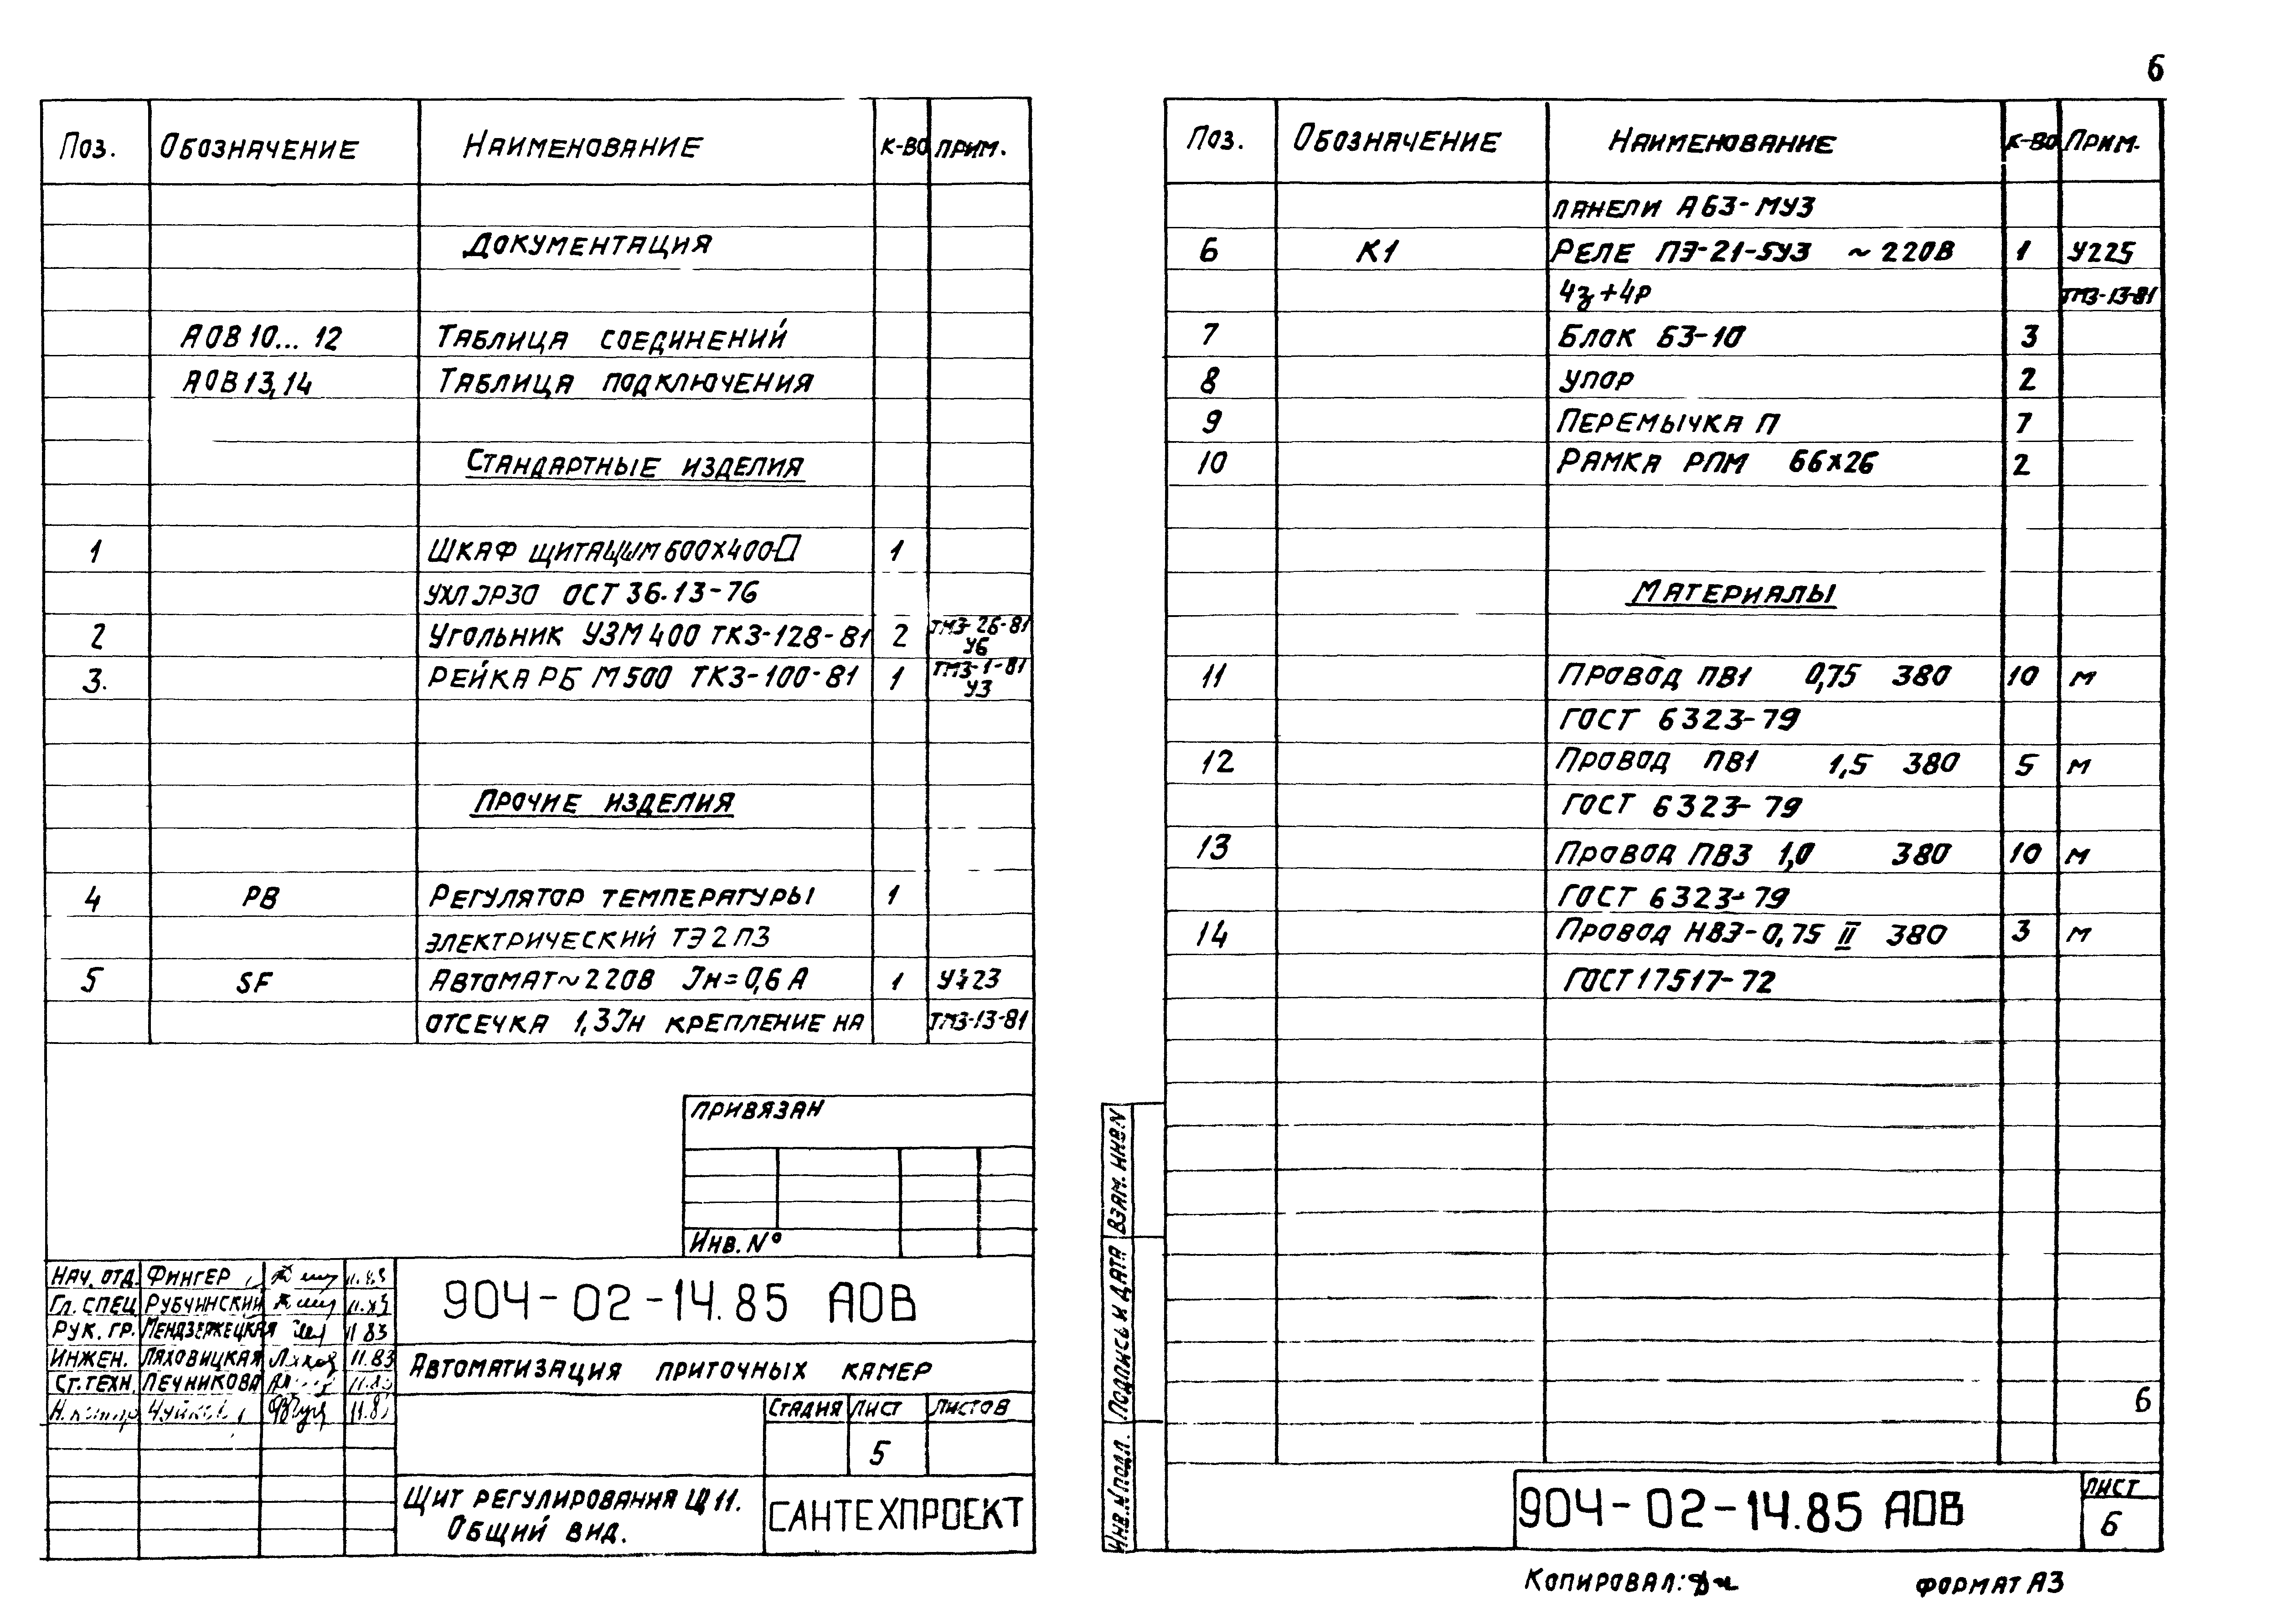 6
Поз. Обозначение Наименование К-во Прим.
Документация
АОВ 10... 12 Таблица соединений
АОВ 13,14 Таблица подключения
Стандартные изделия
1 Шкаф щита ЩШМ 600х400-П 1
УХЛ JP30 ОСТ 36.13-76
2 Угольник УЗМ 400 ТКЗ-128-81 2 ТМЗ-26-81 У6
3. Рейка РБ М500 ТКЗ-100-81 1 ТМЗ-1-81 УЗ
Прочие изделия
4 РВ Регулятор температуры 1
электрический ТЭ2П3
5 SF Автомат ~220В Jн=0,6А 1
отсечка 1,3Jн крепление на ТМЗ-13-81
Привязан
Инв. №
Нач. отд. Фингер
Гл. спец Рубчинский
Рук. гр. Мендзержецкая 11 83
Инжен. Ляховицкая 11.83
Ст. техн. Печникова
904-02-14.85 АОВ
Автоматизация приточных камер
Стадия Лист Листов
5
Щит регулирования Щ11.
Общий вид.
САНТЕХПРОЕКТ
Поз. Обозначение Наименование К-во Прим.
панели А63-МУ3
6 К1 Реле ПЭ-21-5У3 ~220В 1 У225
4з+4р ТМЗ-13-81
7 Блок БЗ-10 3
8 Упор 2
9 Перемычка П 7
10 Рамка РПМ 66х26 2
Материалы
11 Провод ПВ1 0,75 380 10 м
ГОСТ 6323-79
12 Провод ПВ1 1,5 380 5 м
ГОСТ 6323-79
13 Провод ПВ3 1,0 380 10 м
ГОСТ 6323-79
14 Провод НВЭ-0,75 II 380 3 м
ГОСТ 17517-72
6
Взам. инв. N
Подпись и дата
Инв. N подл.
904-02-14.85 АОВ
Лист
6
Копировал:
Формат А3